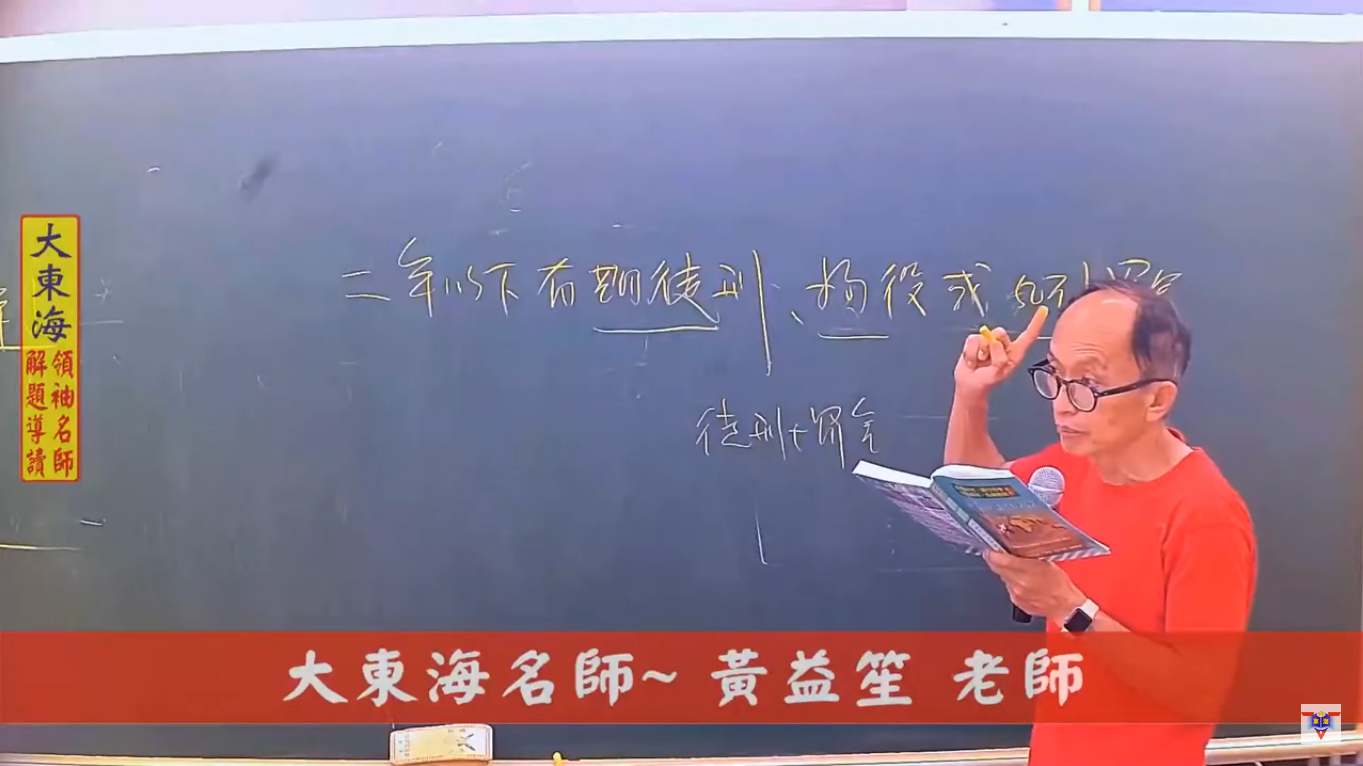 大東海
領袖名師
解題導讀
二年以下有期徒刑、拘役或
徒刑+罰金
大東海名師~ 黃益笙 老師